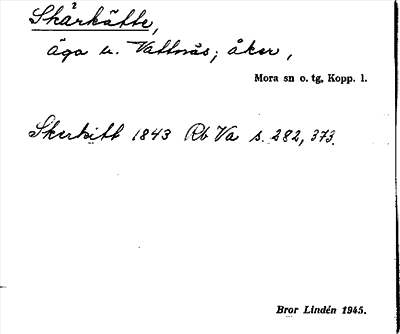 Skårkätte,
äga u. Vattnäs; åker,
Mora sn o. tg, Kopp. l.
Skerkitt 1843 Rb Va s. 282, 373.
Bror Lindén 1945.